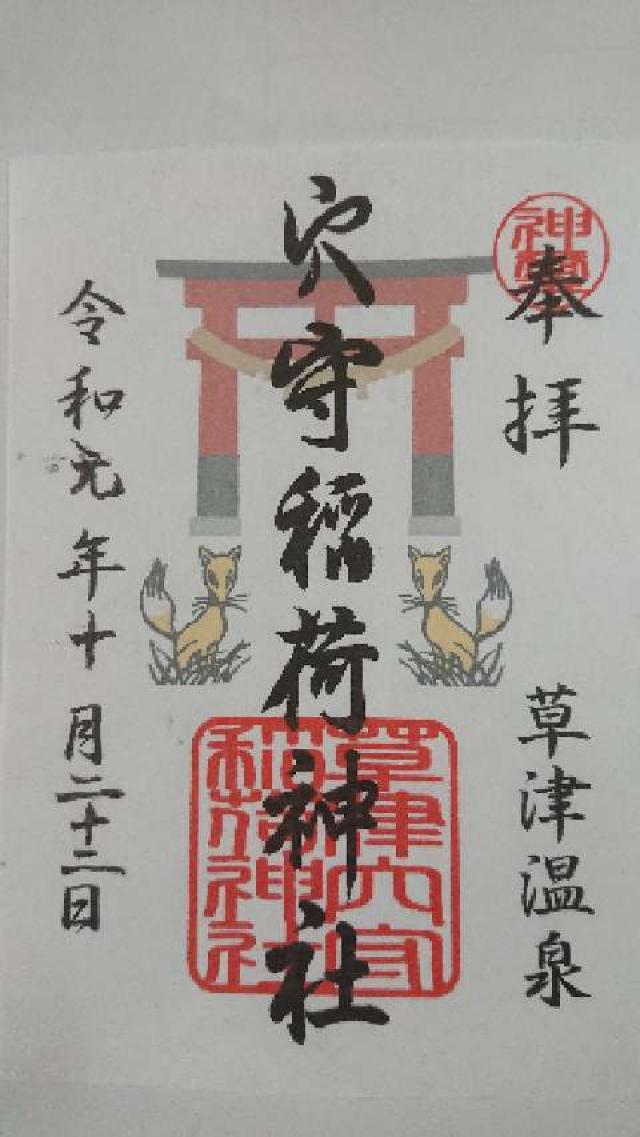 奉拝
草津温泉
穴守稲荷神社
草津穴守
稲荷神社
令和元年十月二十二日